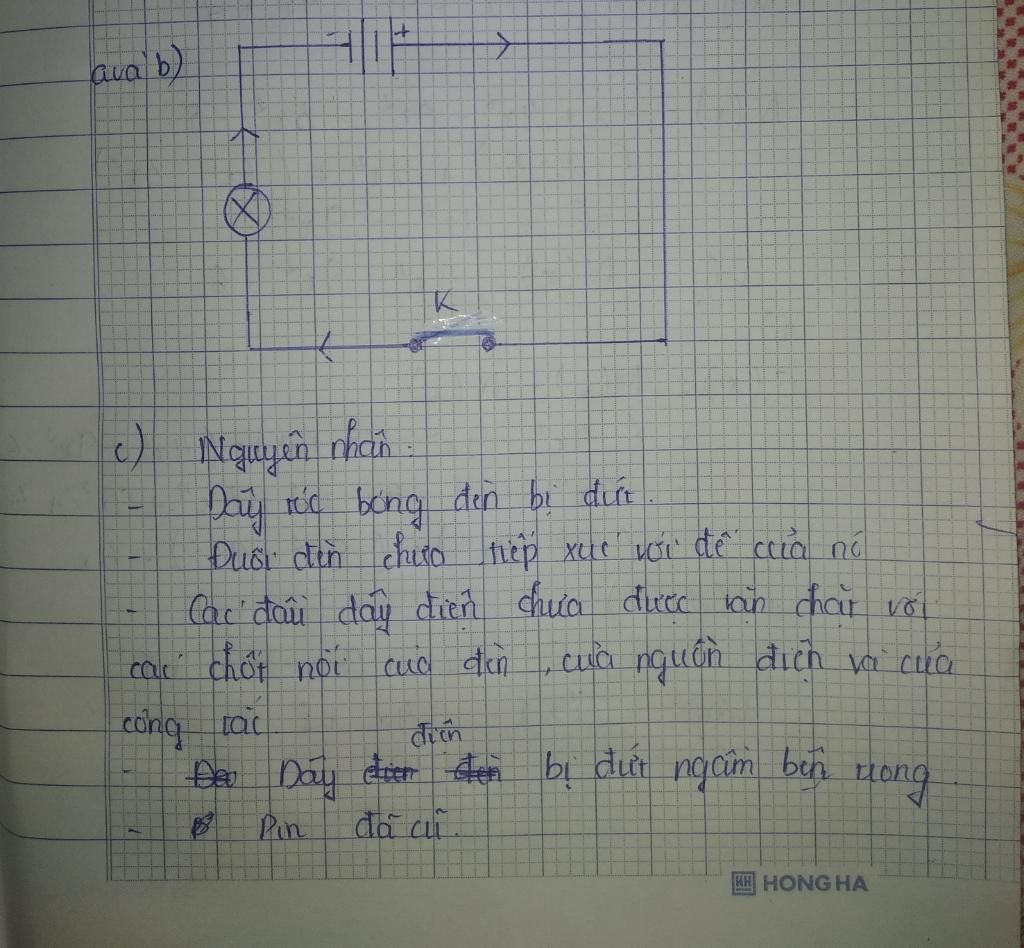 a và b)
- +
K
c) Nguyên nhân:
- Dây tóc bóng đèn bị đứt.
- Đuôi đèn chưa tiếp xúc với đế của nó
- Các đầu dây điện chưa được vặn chặt với
các chốt nối của đèn, của nguồn điện và của
công tắc
điện
- Dây bị đứt ngầm bên trong.
- Pin đã cũ.
HH HONG HA